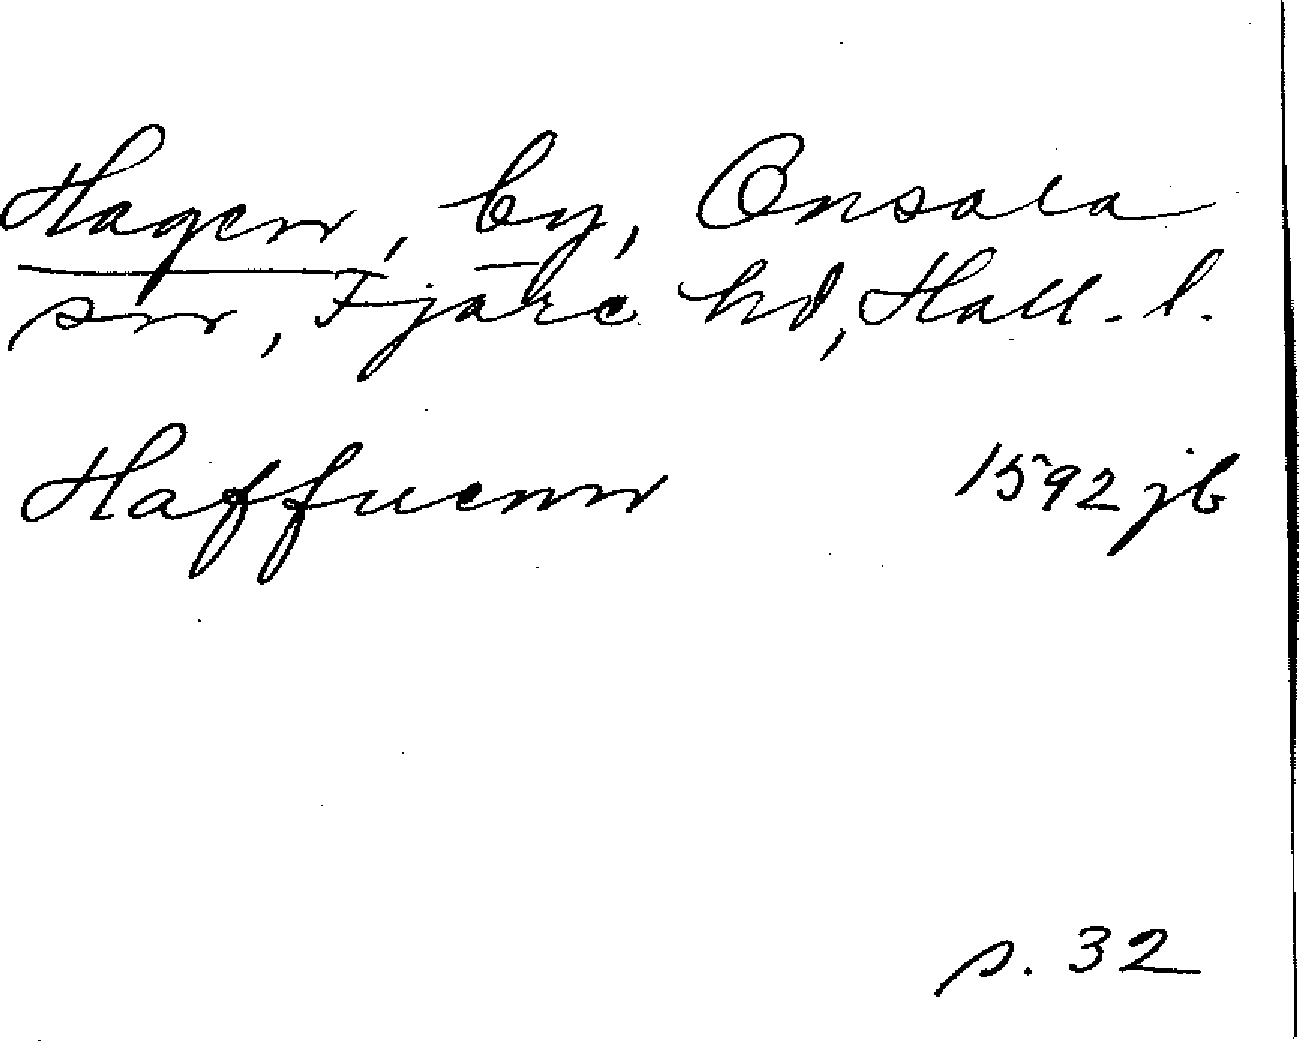 Hagen, by, Onsala
sn, Fjäre hd, Hall. l.
Haffuenn 1592 jb
s. 32